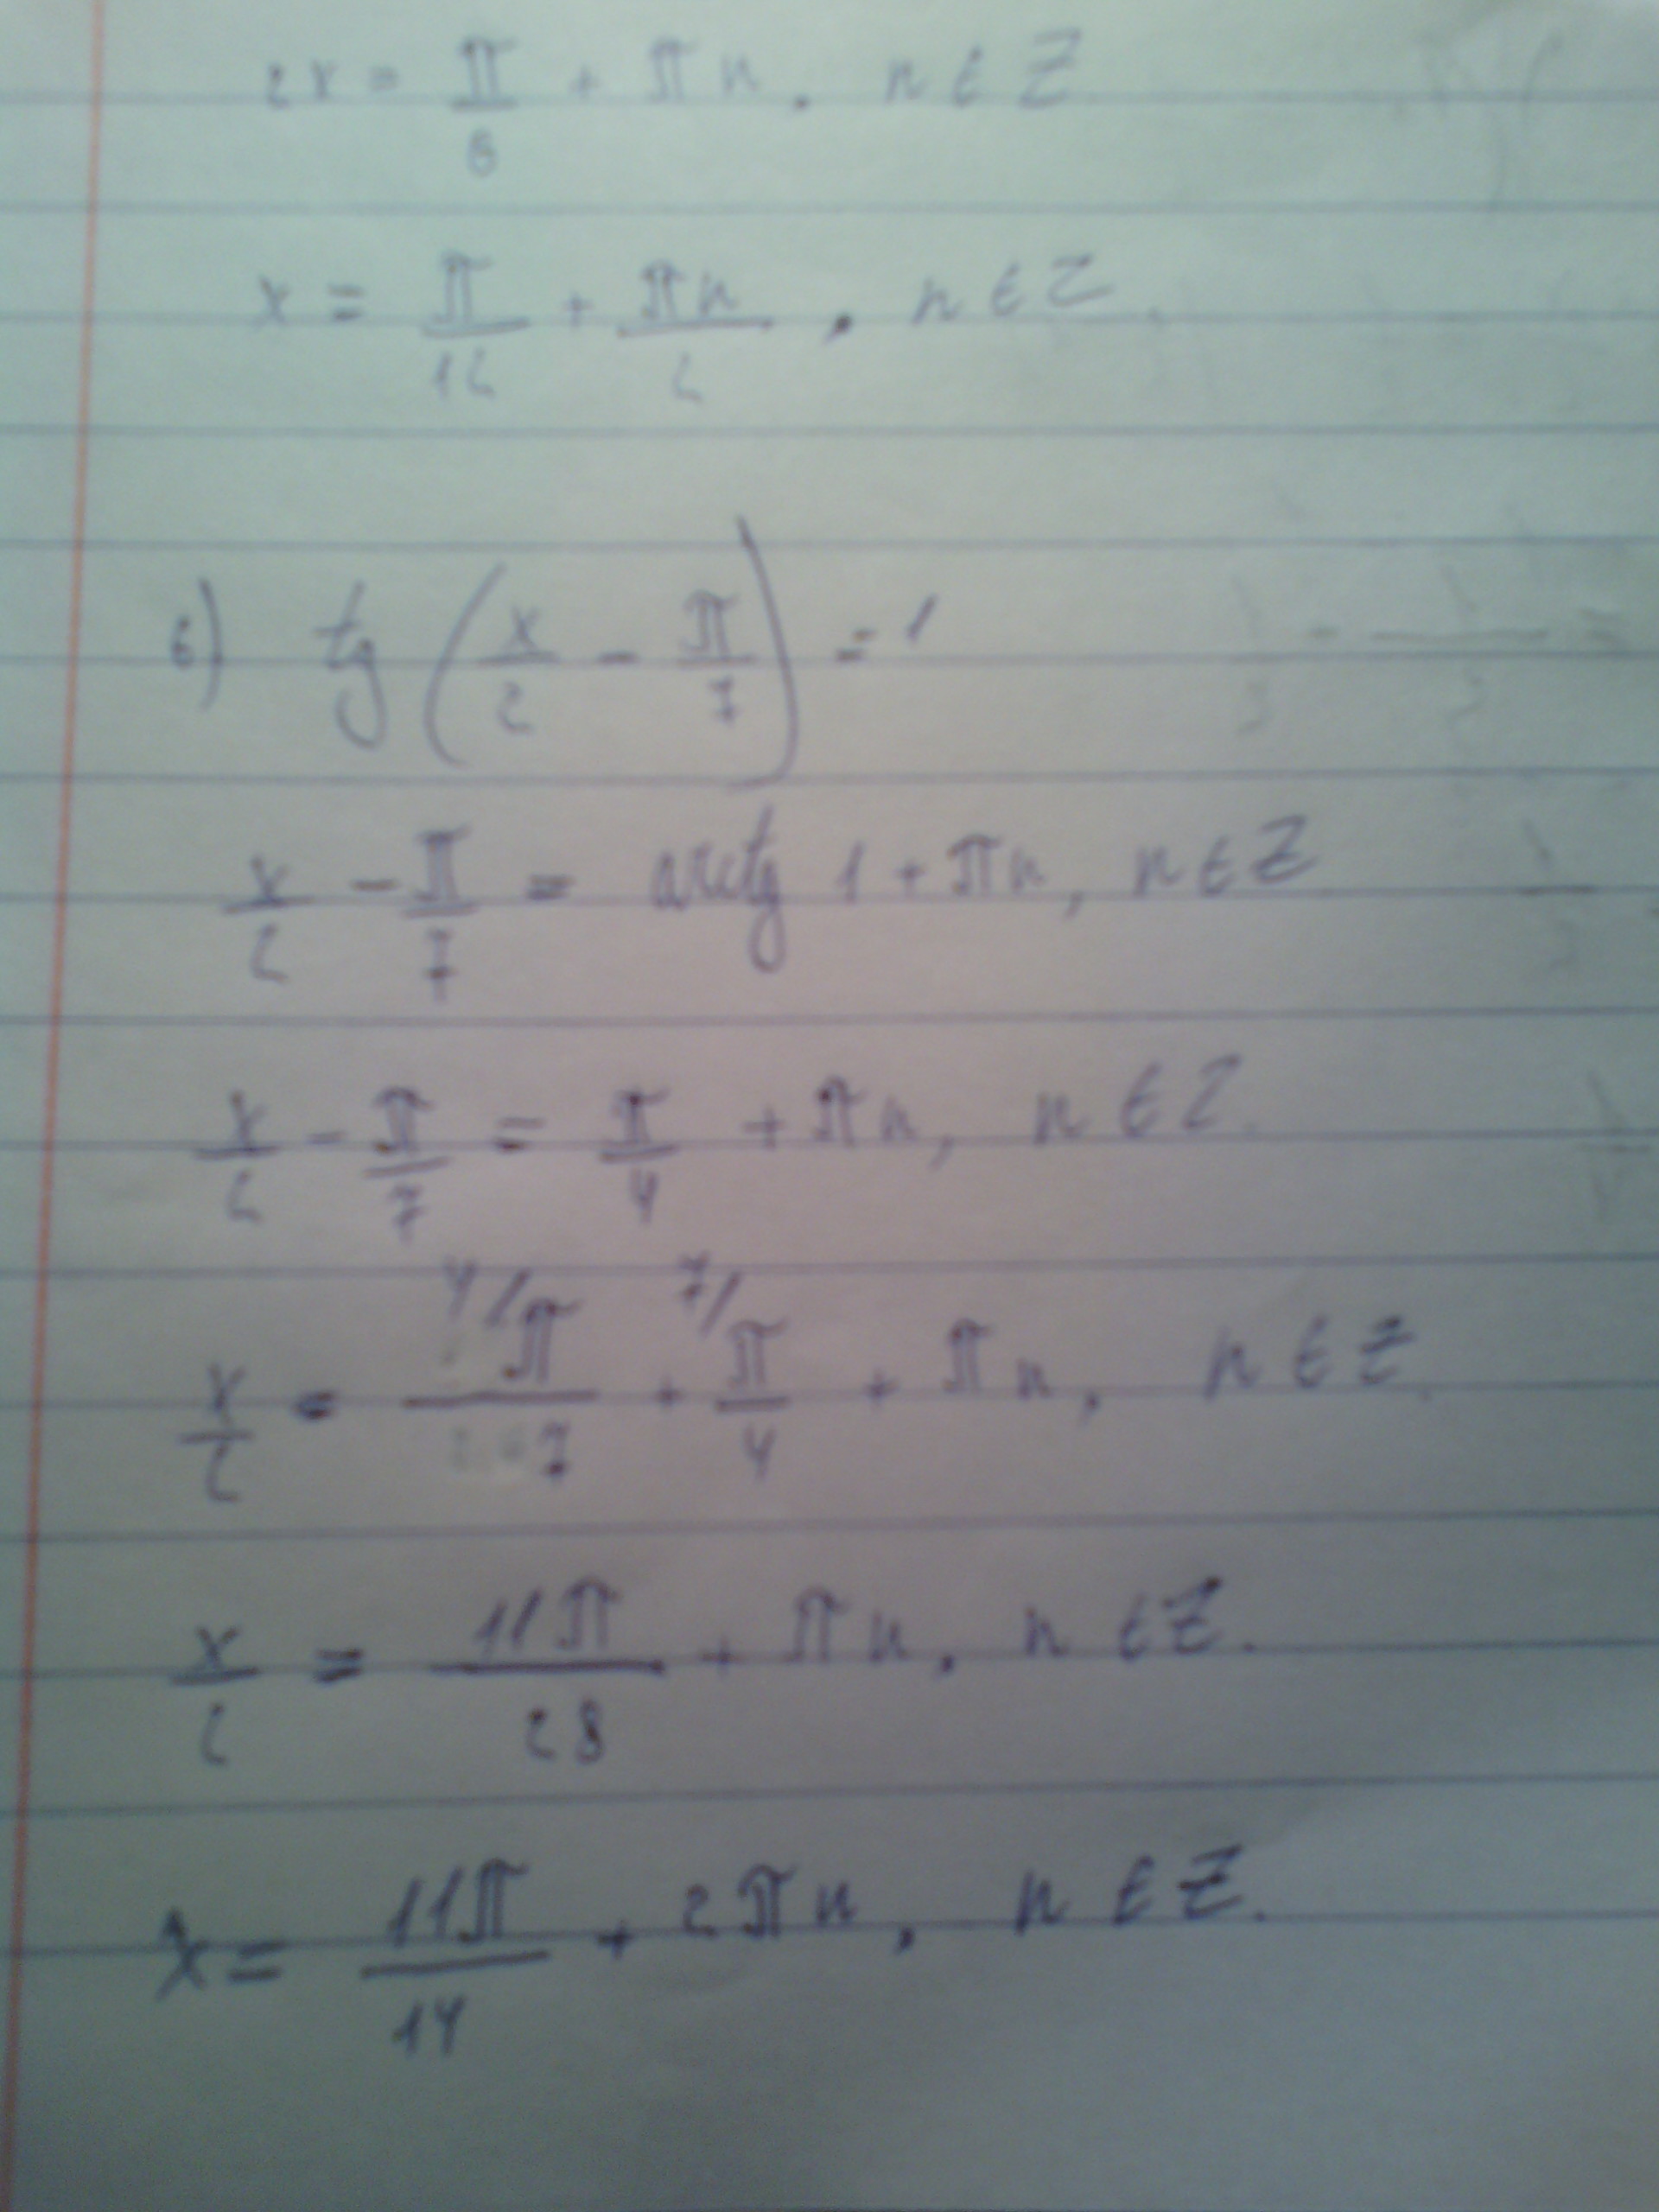 2x = π/6 + πn, n ∈ Z
x = π/12 + πn/2, n ∈ Z.
б) tg(x/2 - π/7) = 1
x/2 - π/7 = arctg 1 + πn, n ∈ Z
x/2 - π/7 = π/4 + πn, n ∈ Z.
x/2 = ⁴⁄π/7 + ⁷⁄π/4 + πn, n ∈ Z.
x/2 = 11π/28 + πn, n ∈ Z.
x = 11π/14 + 2πn, n ∈ Z.